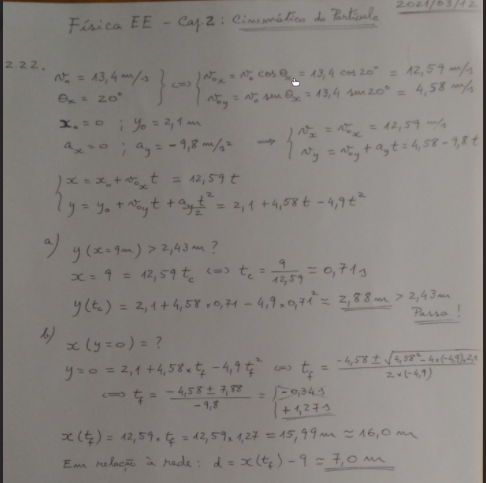 2021/03/12
Física EE - Cap. 2 : Cinemática da Partícula
2.22. v₀ = 13,4 m/s } ⇔ { v₀ₓ = v₀ cos θₓ = 13,4 cos 20° = 12,59 m/s
θₓ = 20° v₀y = v₀ sen θₓ = 13,4 sen 20° = 4,58 m/s
x₀ = 0 ; y₀ = 2,1 m
aₓ = 0 ; ay = -9,8 m/s² → { vₓ = v₀ₓ = 12,59 m/s
vy = v₀y + ay t = 4,58 - 9,8 t
{ x = x₀ + v₀ₓ t = 12,59 t
y = y₀ + v₀y t + ay t²/2 = 2,1 + 4,58 t - 4,9 t²
a) y (x = 9 m) > 2,43 m ?
x = 9 = 12,59 t_c ⇔ t_c = 9/12,59 ≈ 0,71 s
y(t_c) = 2,1 + 4,58 × 0,71 - 4,9 × 0,71² ≈ 2,88 m > 2,43 m
Passa !
b) x (y = 0) = ?
y = 0 = 2,1 + 4,58 × t_f - 4,9 t_f² ⇔ t_f = (-4,58 ± √(4,58² - 4×(-4,9)×2,1))/(2×(-4,9))
⇔ t_f = (-4,58 ± 7,88)/(-9,8) = { -0,34 s
+1,27 s
x(t_f) = 12,59 × t_f = 12,59 × 1,27 = 15,99 m ≈ 16,0 m
Em relação à rede : d = x(t_f) - 9 ≈ 7,0 m